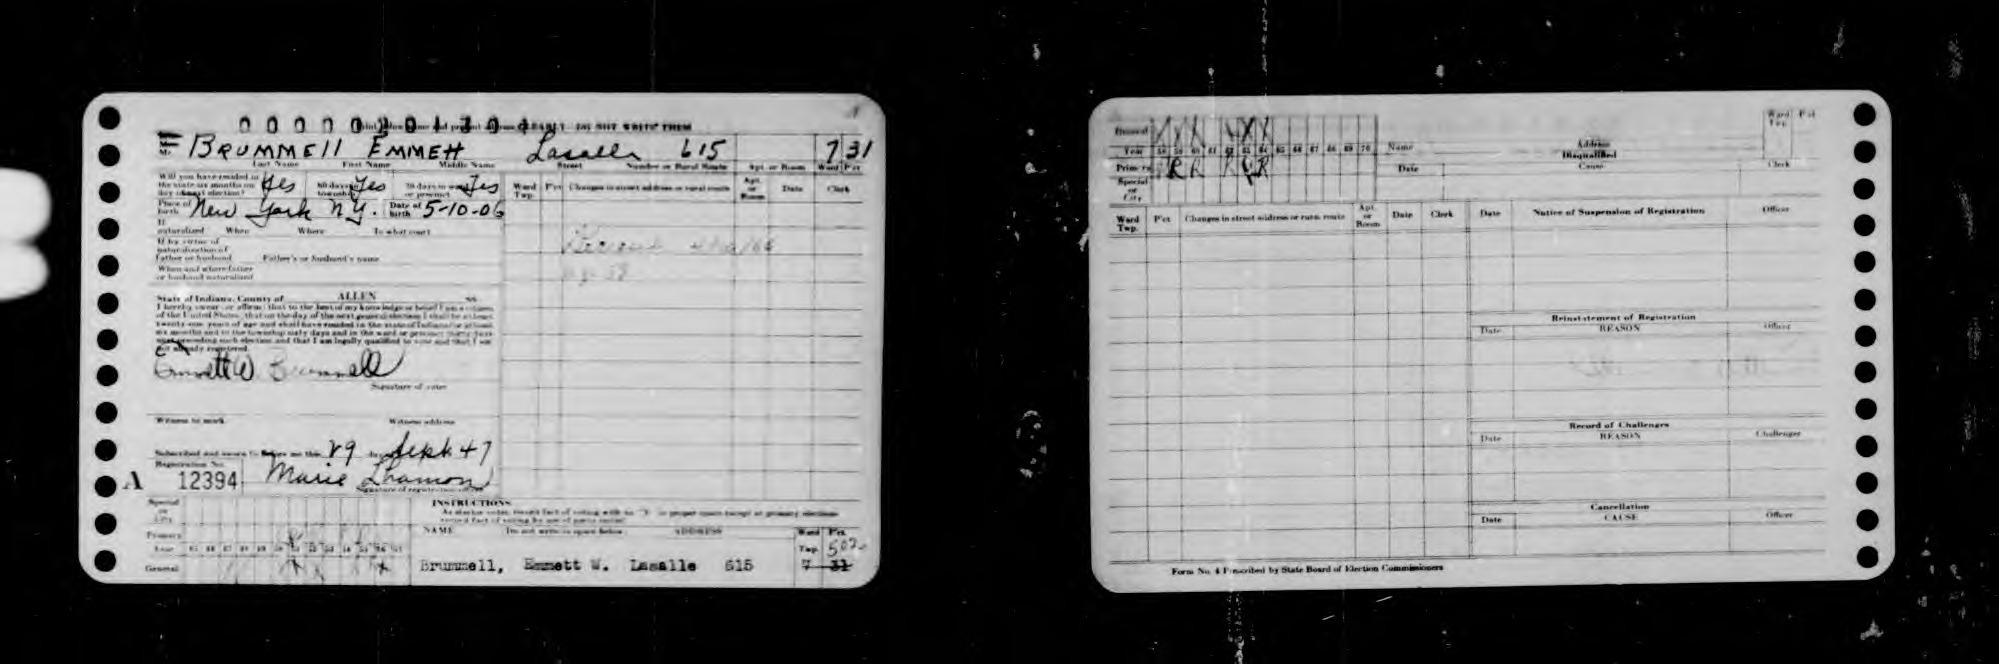 BRUMMELL EMMETT Lasalle 615 7 31
Last Name First Name Middle Name Street Number or Rural Route Apt. or Room Ward Pct
Will you have resided in
the state six months on Yes 60 days in township Yes 30 days in ward or precinct Yes
day of next election?
Ward Twp. Pct Changes in street address or rural route Apt. or Room Date Clerk
Place of birth New York N.Y. Date of birth 5-10-06
If
naturalized When Where To what court
If by virtue of
naturalization of
father or husband Father's or husband's name
When and where father
or husband naturalized
State of Indiana, County of ALLEN ss.
I hereby swear or affirm that to the best of my knowledge or belief I am a citizen
of the United States, that on the day of the next general election I shall be at least
twenty-one years of age and shall have resided in the state of Indiana for at least
six months and in the township sixty days and in the ward or precinct thirty days
next preceding such election and that I am legally qualified to vote and that I am
not already registered.
Emmett W. Brummell
Signature of voter
Witness to mark Witness address
Subscribed and sworn to before me this 29 day Sept 47
Registration No.
A 12394 Marie
Signature of registration officer
Special
or
City
INSTRUCTIONS
Primary
Year
General
NAME Do not write in space below ADDRESS Ward Pct.
Twp. 502
Brummell, Emmett W. Lasalle 615 7 31
General
Year 58 59 60 61 62 63 64 65 66 67 68 69 70
Primary R R R R
Special
or
City
Name Address
Disqualified
Date Cause Clerk
Ward Twp. Pct
Ward Twp. Pct Changes in street address or rural route Apt. or Room Date Clerk
Date Notice of Suspension of Registration Officer
Reinstatement of Registration
Date REASON Officer
Record of Challenges
Date REASON Challenger
Cancellation
Date CAUSE Officer
Form No. 4 Prescribed by State Board of Election Commissioners